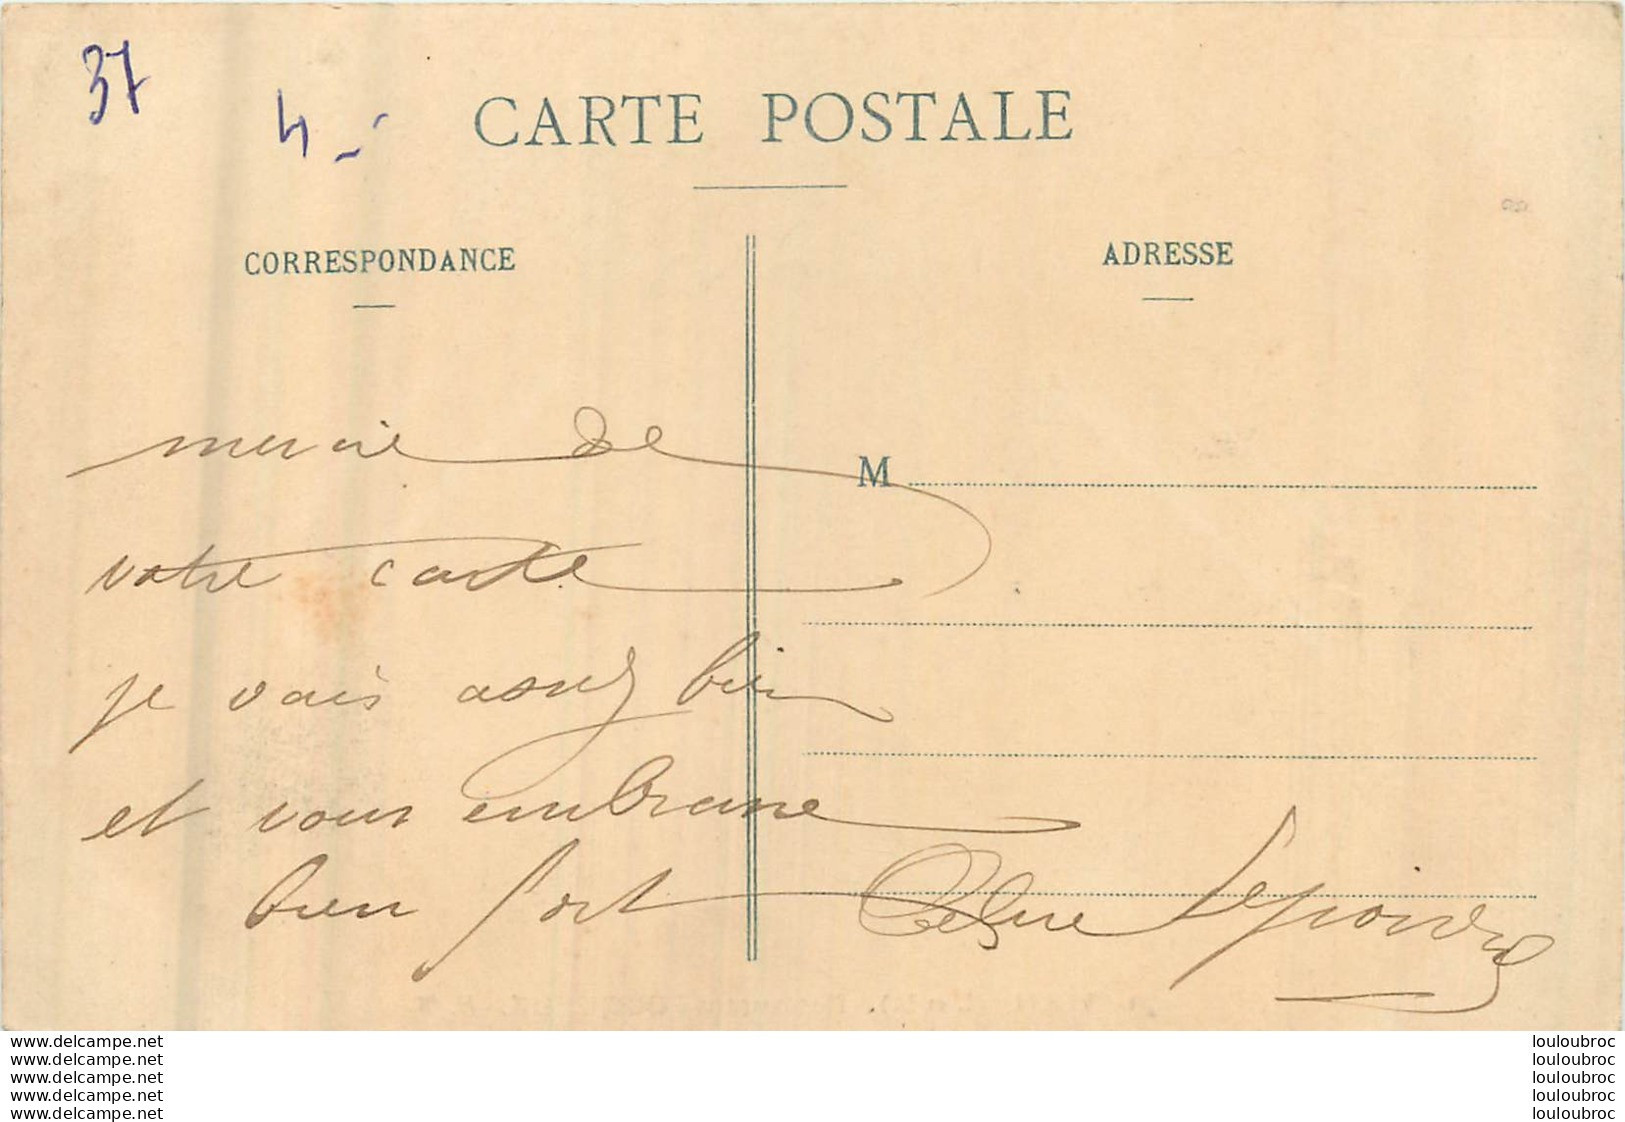 37
4 -
CARTE POSTALE
CORRESPONDANCE
ADRESSE
mercie de
votre carte
M
je vais assez bien
et vous embrasse
bien fort
www.delcampe.net
www.delcampe.net
www.delcampe.net
www.delcampe.net
www.delcampe.net
louloubroc
louloubroc
louloubroc
louloubroc
louloubroc